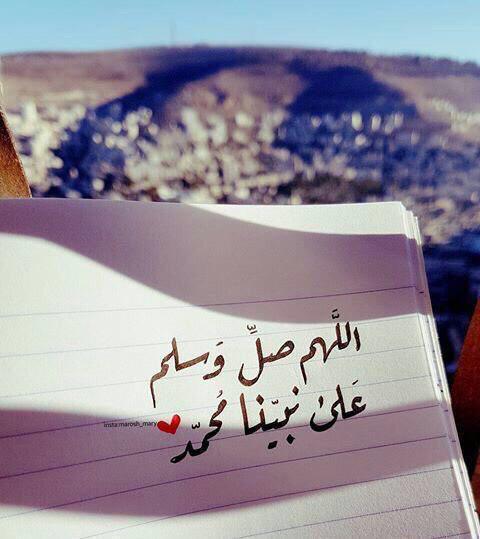 اللَّهم صلِّ وَسلم
عَلىٰ نبيّنا مُحمّد
insta:marosh_mary